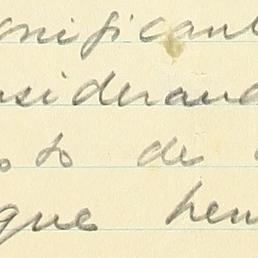 gnificant
nsiderand
to de
que hem